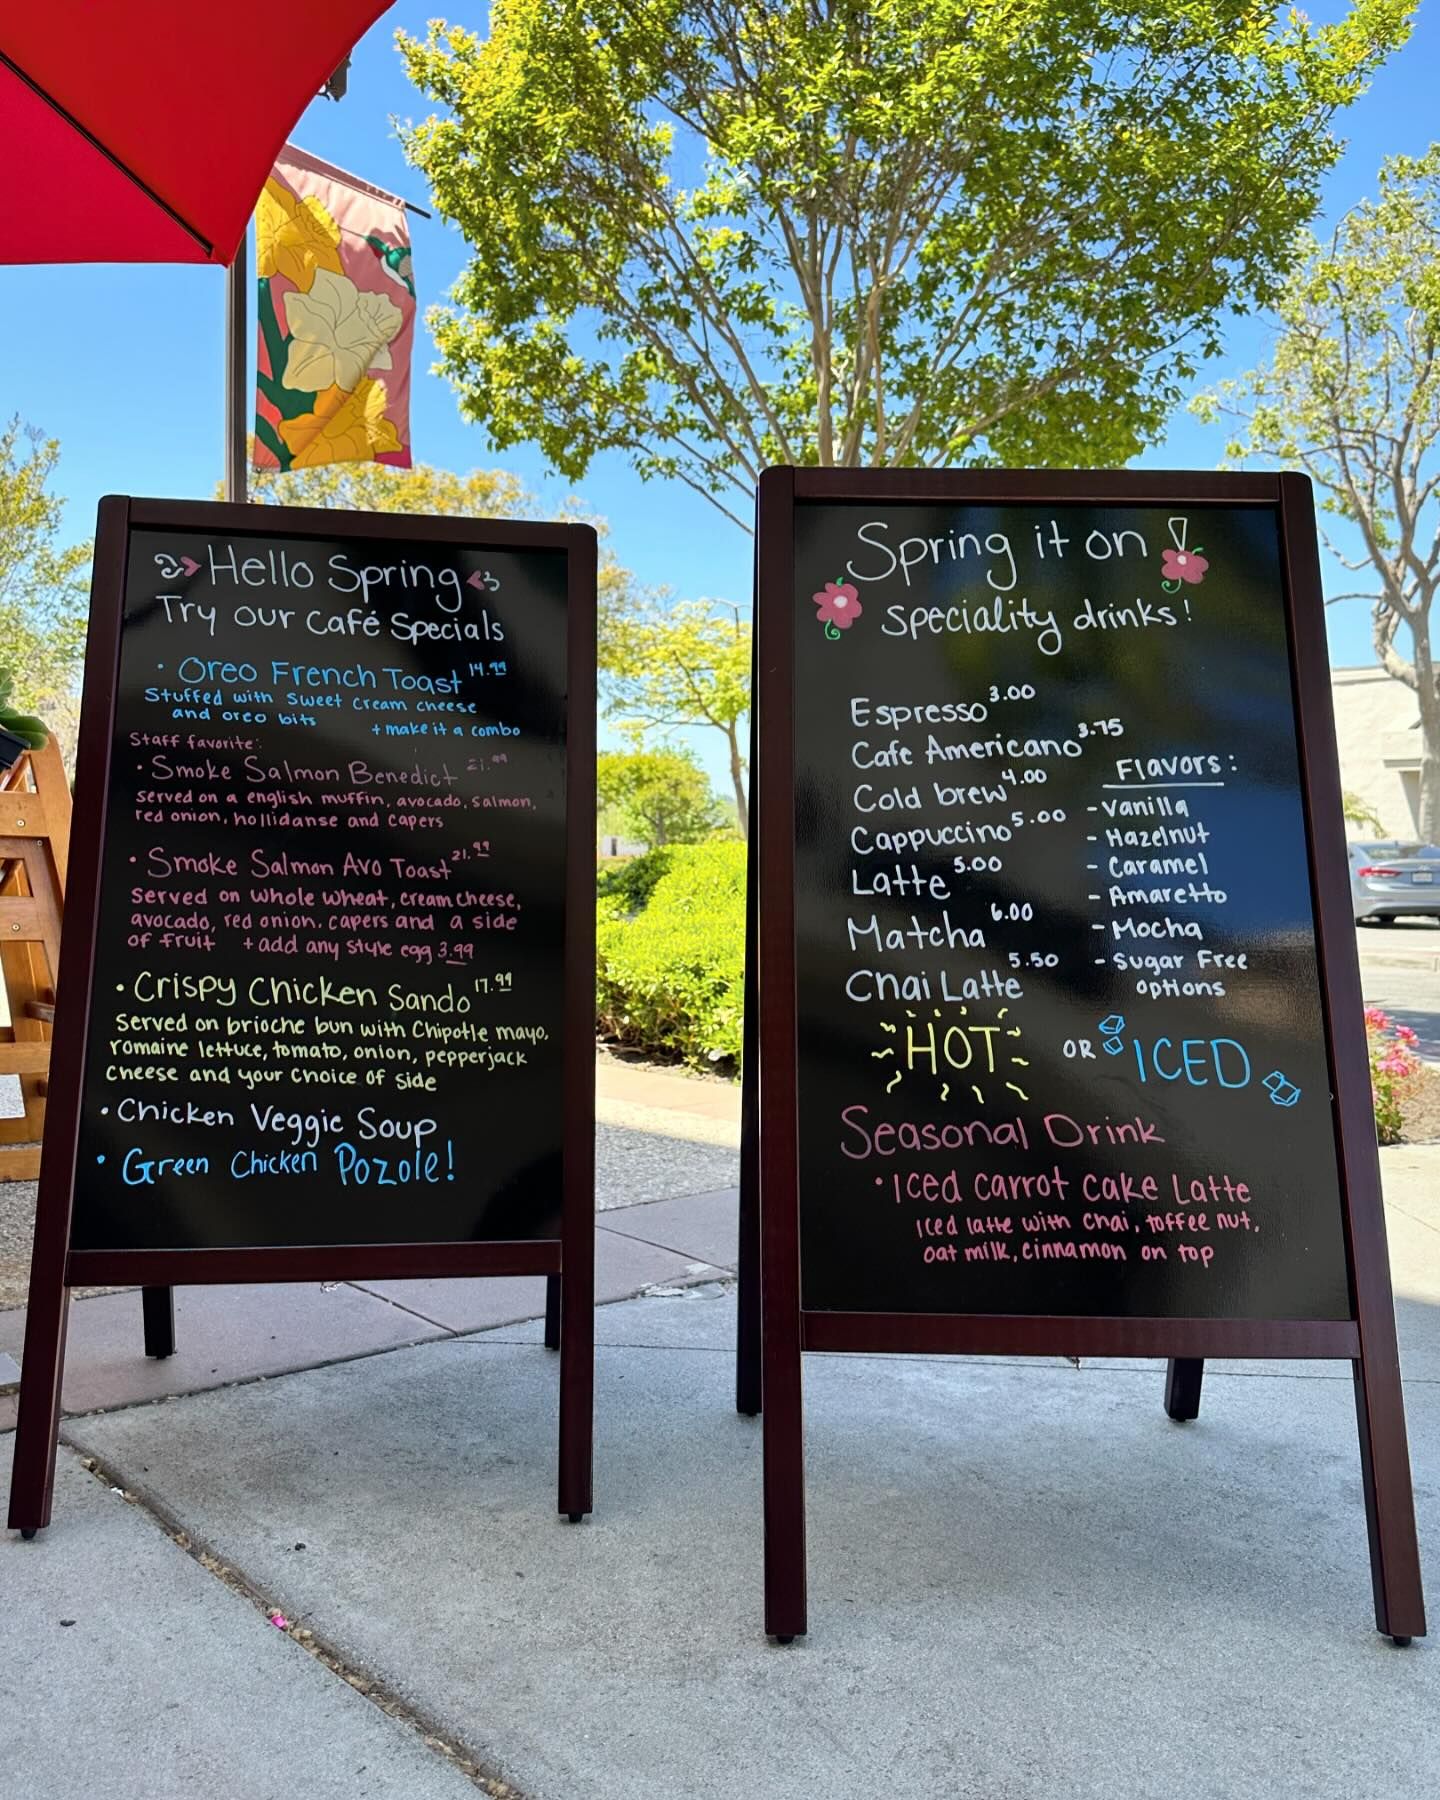 Hello Spring
Try our Café Specials
• Oreo French Toast 14.99
Stuffed with sweet cream cheese
and oreo bits
+ make it a combo
Staff favorite:
• Smoke Salmon Benedict 21.99
Served on a english muffin, avocado, salmon,
red onion, hollidanse and capers
• Smoke Salmon Avo Toast 21.99
Served on whole wheat, cream cheese,
avocado, red onion, capers and a side
of fruit + add any style egg 3.99
• Crispy Chicken Sando 17.99
Served on brioche bun with Chipotle mayo,
romaine lettuce, tomato, onion, pepperjack
cheese and your choice of side
• Chicken Veggie Soup
• Green Chicken Pozole!
Spring it on!
speciality drinks!
Espresso 3.00
Cafe Americano 3.75
Cold brew 4.00
Cappuccino 5.00
Latte 5.00
Matcha 6.00
Chai Latte 5.50
Flavors:
- Vanilla
- Hazelnut
- Caramel
- Amaretto
- Mocha
- Sugar Free
options
HOT OR ICED
Seasonal Drink
• Iced carrot cake Latte
Iced latte with chai, toffee nut,
oat milk, cinnamon on top